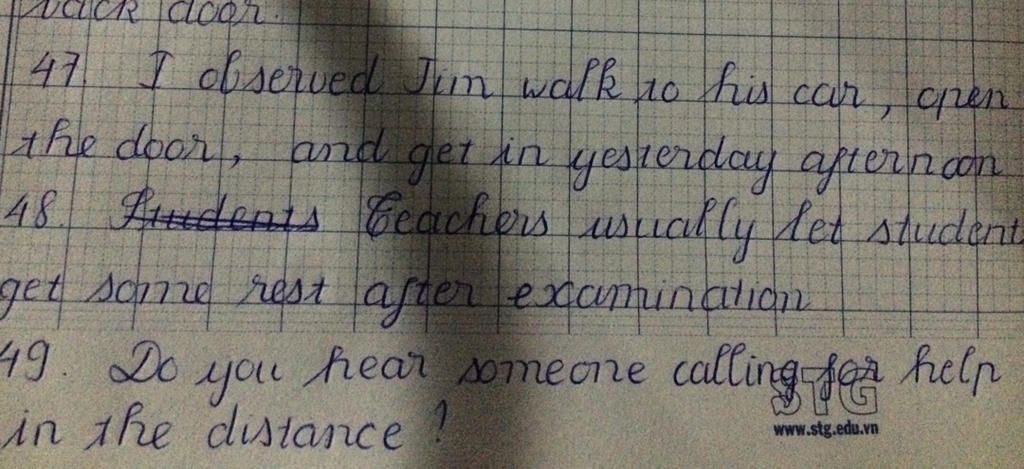 back door.
47. I observed Jim walk to his car, open
the door, and get in yesterday afternoon
48. Students Teachers usually let student
get some rest after examination
49. Do you hear someone calling for help
in the distance?
STG
www.stg.edu.vn